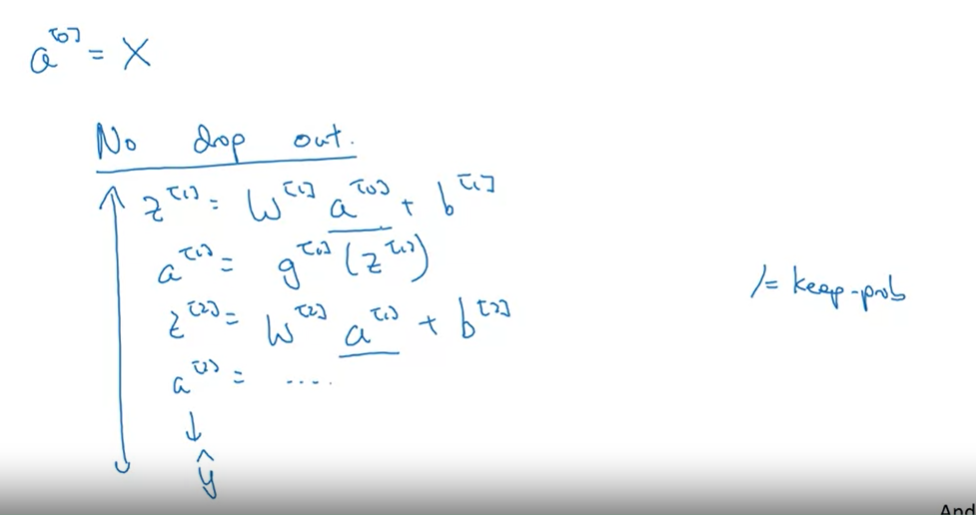 a^[0] = X
No drop out.
z^[1] = W^[1] a^[0] + b^[1]
a^[1] = g^[1] (z^[1])
z^[2] = W^[2] a^[1] + b^[2]
a^[2] = ....
↓
ŷ
/= keep-prob
And